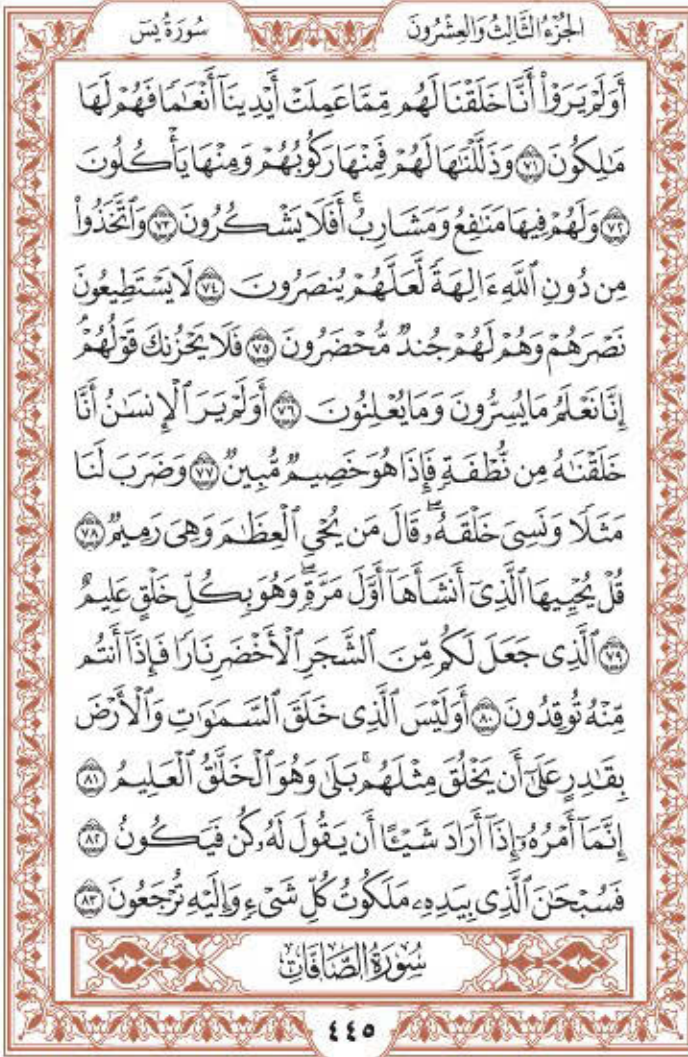 الجُزْءُ الثَّالِثُ وَالعِشْرُونَ
سُورَةُ يسٓ
أَوَلَمْ يَرَوْا۟ أَنَّا خَلَقْنَا لَهُم مِّمَّا عَمِلَتْ أَيْدِينَآ أَنْعَٰمًا فَهُمْ لَهَا
مَٰلِكُونَ ٧١ وَذَلَّلْنَٰهَا لَهُمْ فَمِنْهَا رَكُوبُهُمْ وَمِنْهَا يَأْكُلُونَ
٧٢ وَلَهُمْ فِيهَا مَنَٰفِعُ وَمَشَارِبُ ۖ أَفَلَا يَشْكُرُونَ ٧٣ وَٱتَّخَذُوا۟
مِن دُونِ ٱللَّهِ ءَالِهَةً لَّعَلَّهُمْ يُنصَرُونَ ٧٤ لَا يَسْتَطِيعُونَ
نَصْرَهُمْ وَهُمْ لَهُمْ جُندٌ مُّحْضَرُونَ ٧٥ فَلَا يَحْزُنكَ قَوْلُهُمْ ۘ
إِنَّا نَعْلَمُ مَا يُسِرُّونَ وَمَا يُعْلِنُونَ ٧٦ أَوَلَمْ يَرَ ٱلْإِنسَٰنُ أَنَّا
خَلَقْنَٰهُ مِن نُّطْفَةٍ فَإِذَا هُوَ خَصِيمٌ مُّبِينٌ ٧٧ وَضَرَبَ لَنَا
مَثَلًا وَنَسِىَ خَلْقَهُۥ ۖ قَالَ مَن يُحْىِ ٱلْعِظَٰمَ وَهِىَ رَمِيمٌ ٧٨
قُلْ يُحْيِيهَا ٱلَّذِىٓ أَنشَأَهَآ أَوَّلَ مَرَّةٍ ۖ وَهُوَ بِكُلِّ خَلْقٍ عَلِيمٌ
٧٩ ٱلَّذِى جَعَلَ لَكُم مِّنَ ٱلشَّجَرِ ٱلْأَخْضَرِ نَارًا فَإِذَآ أَنتُم
مِّنْهُ تُوقِدُونَ ٨٠ أَوَلَيْسَ ٱلَّذِى خَلَقَ ٱلسَّمَٰوَٰتِ وَٱلْأَرْضَ
بِقَٰدِرٍ عَلَىٰٓ أَن يَخْلُقَ مِثْلَهُم ۚ بَلَىٰ وَهُوَ ٱلْخَلَّٰقُ ٱلْعَلِيمُ ٨١
إِنَّمَآ أَمْرُهُۥٓ إِذَآ أَرَادَ شَيْـًٔا أَن يَقُولَ لَهُۥ كُن فَيَكُونُ ٨٢
فَسُبْحَٰنَ ٱلَّذِى بِيَدِهِۦ مَلَكُوتُ كُلِّ شَىْءٍ وَإِلَيْهِ تُرْجَعُونَ ٨٣
سُورَةُ الصَّافَّاتِ
٤٤٥